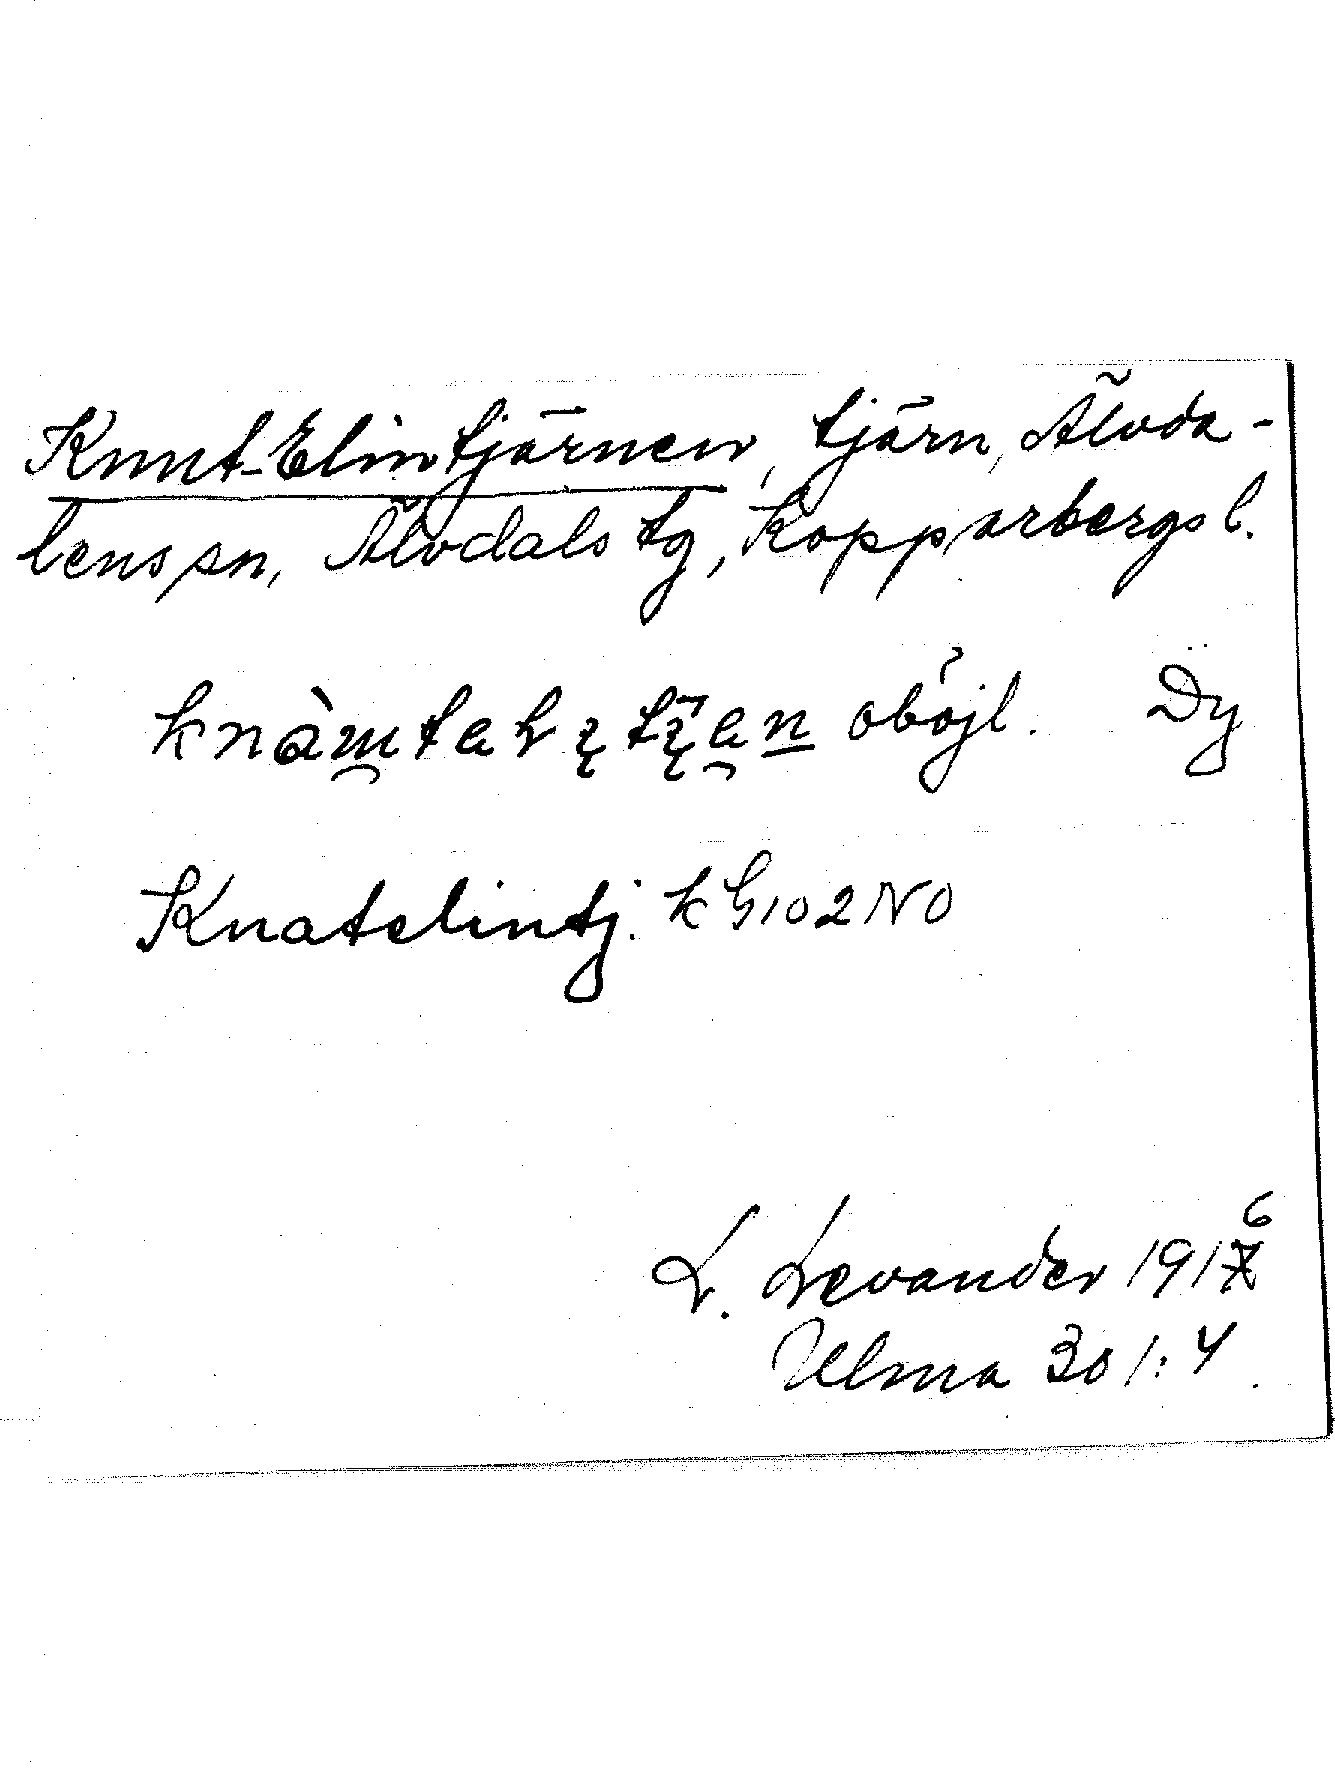 Knut-Elintjärnen, tjärn, Älvda-
lens sn, Älvdals tg, Kopparbergs l.
oböjl. Dy
Knatelintj. k G102NO
L. Levander 1916
Ulma 301:4